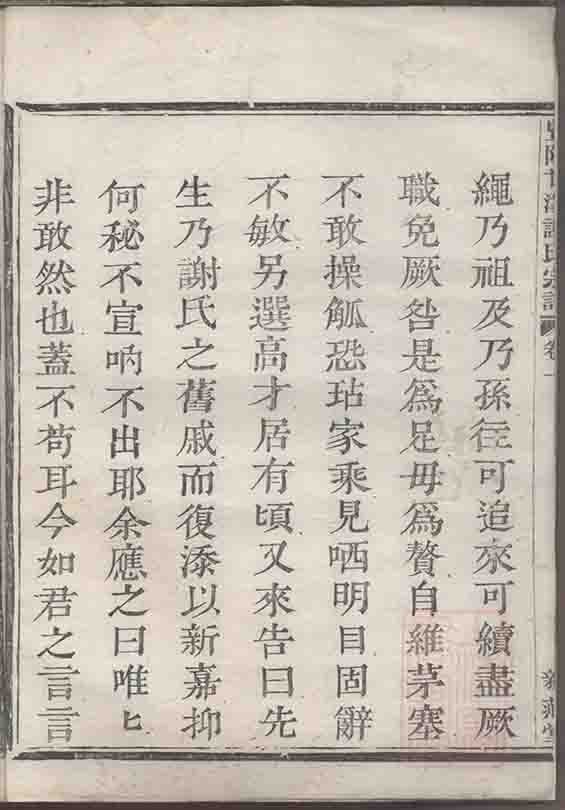 繩乃祖及乃孫徃可追來可續盡厥
職免厥咎是爲足毋爲贅自維茅塞
不敢操觚恐玷家乘見哂明日固辭
不敏另選高才居有頃又來告曰先
生乃謝氏之舊戚而復添以新嘉抑
何秘不宣吶不出耶余應之曰唯匕
非敢然也蓋不苟耳今如君之言言